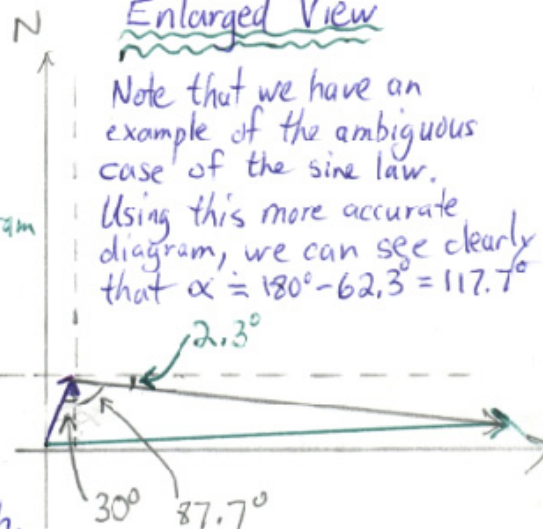 Enlarged View
N
Note that we have an
example of the ambiguous
case of the sine law.
Using this more accurate
diagram, we can see clearly
that α ≐ 180° - 62.3° = 117.7°
2.3°
30°
87.7°